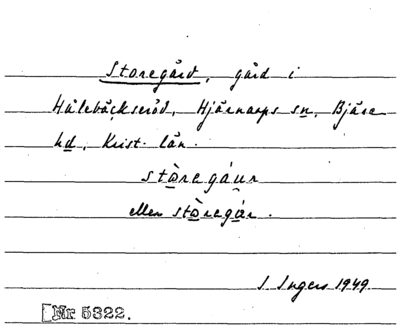 Storegård, gård i
Hålebäckseröd, Hjärnarps sn, Bjäre
hd, Krist. län.
stòregáur
eller stòregår.
I. Ingers 1949.
[Nr 5322.